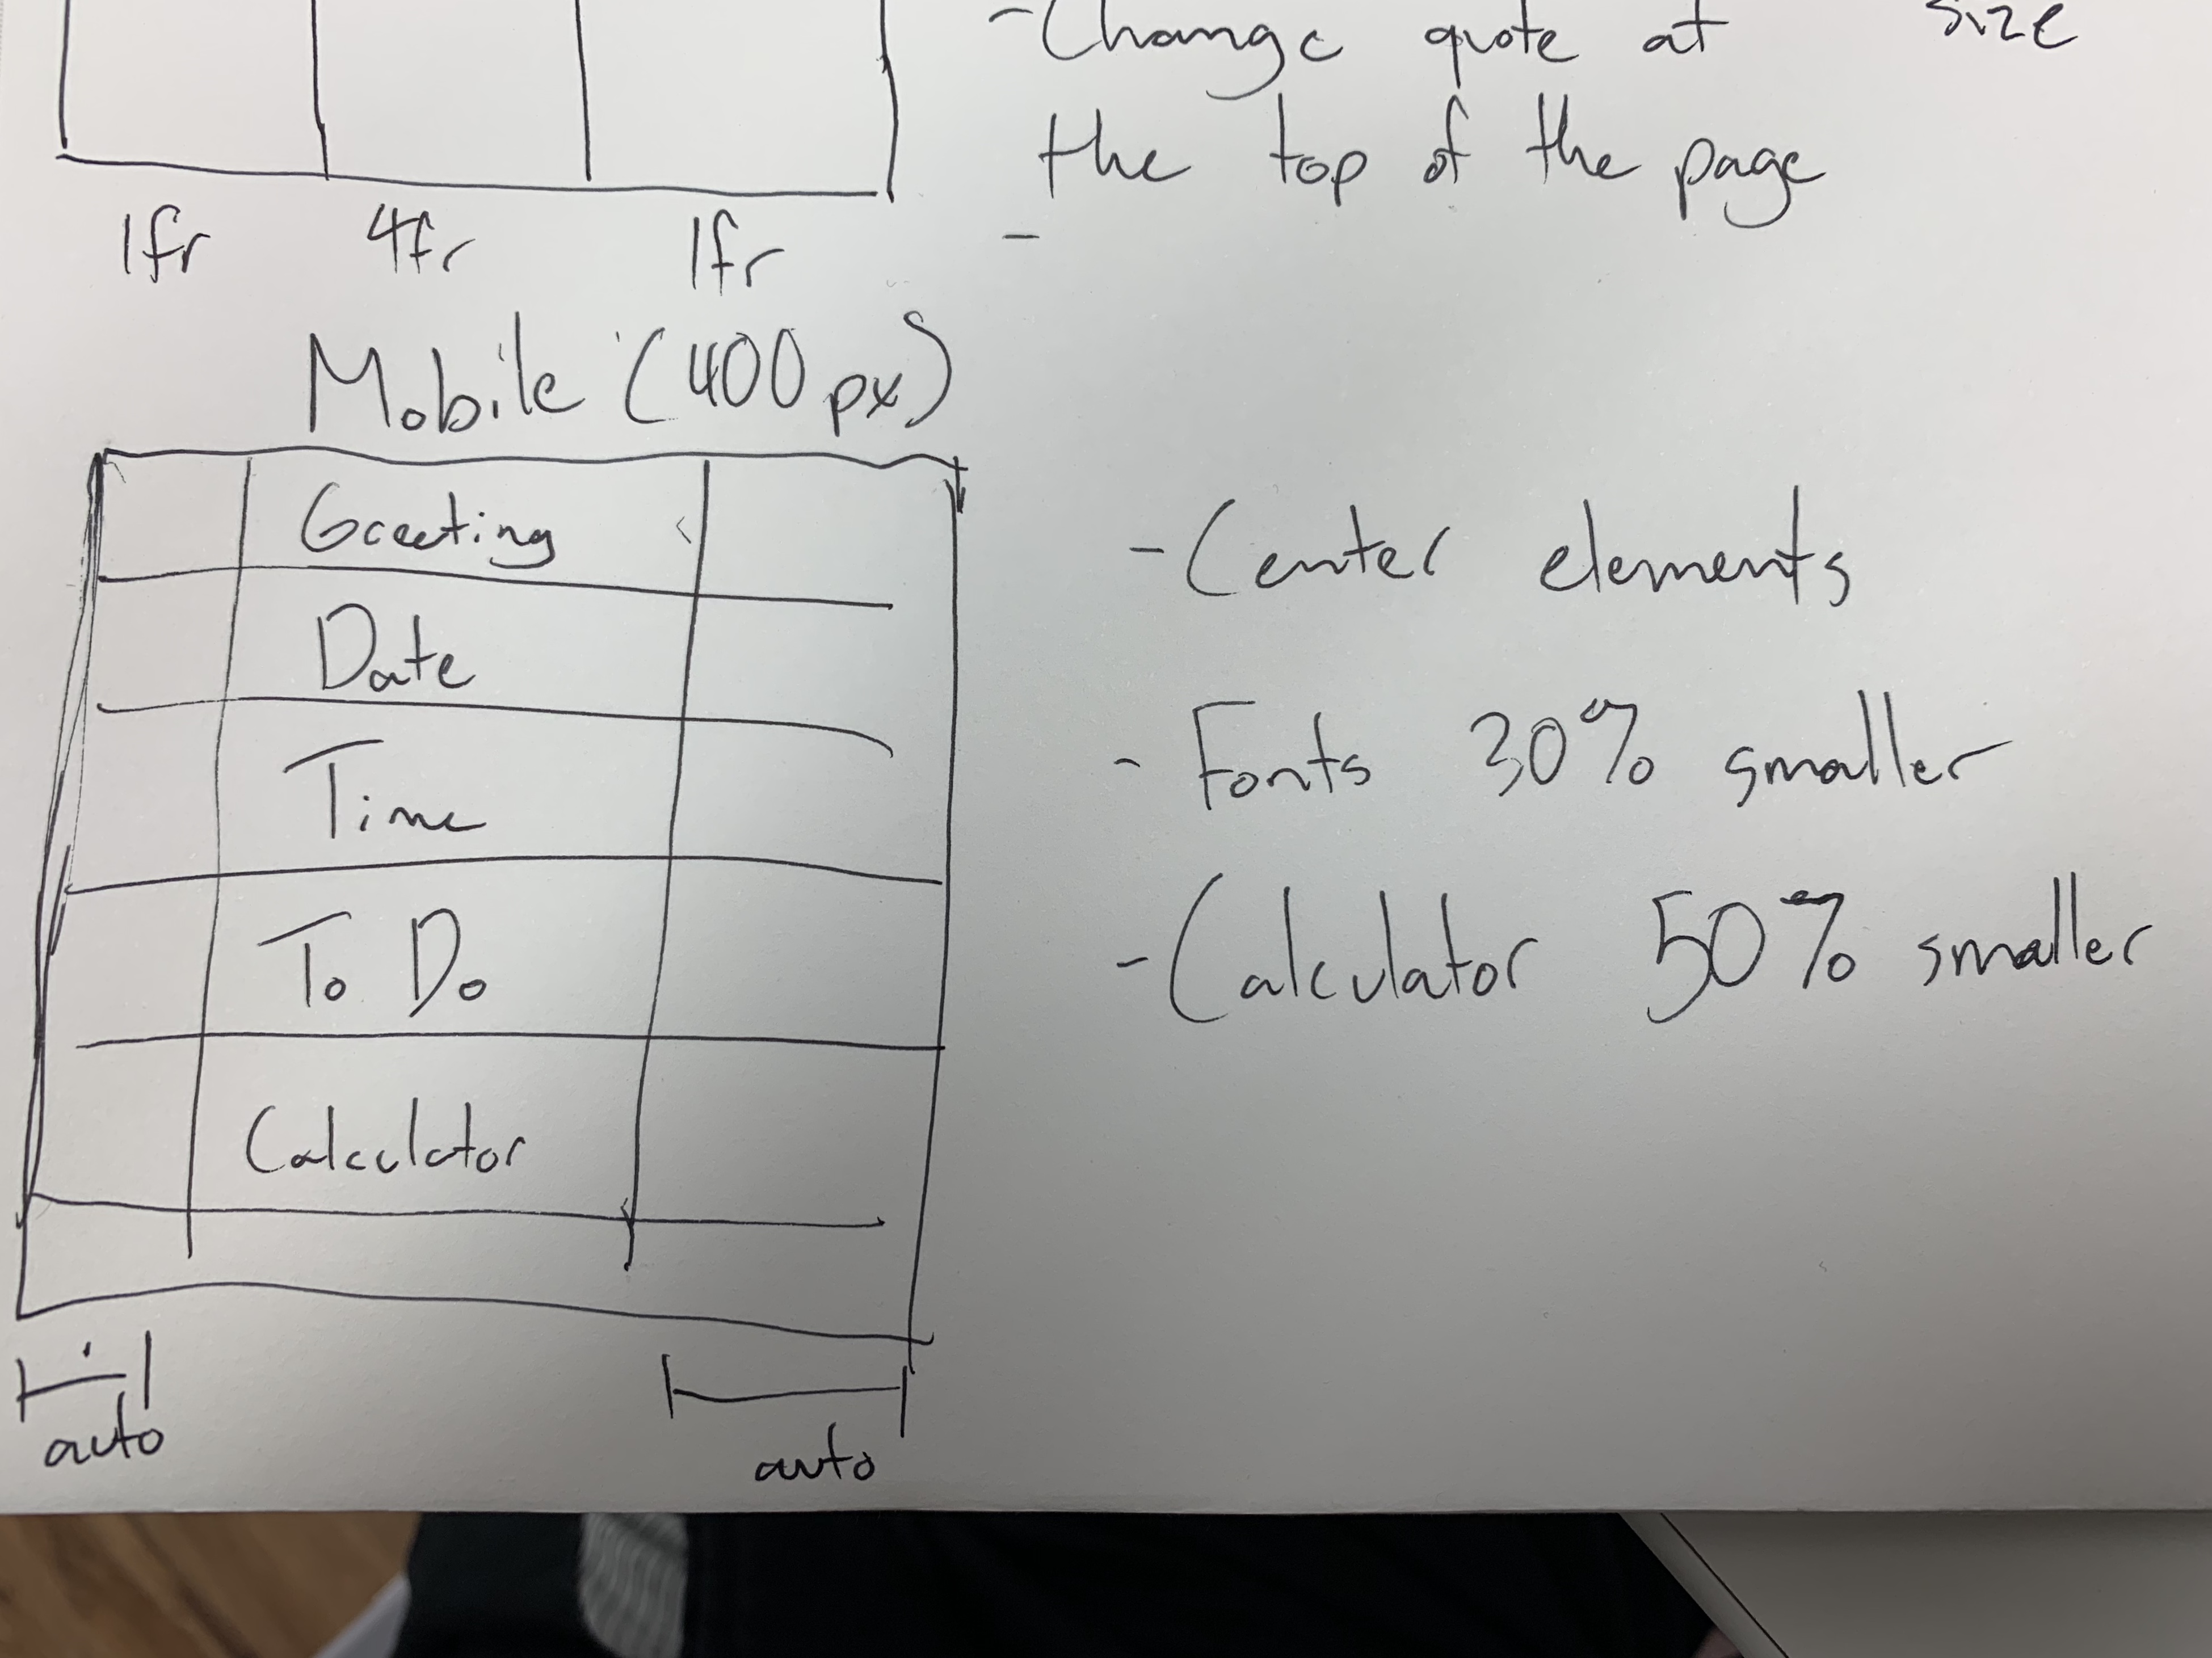 -Change quote at size
the top of the page
-
1fr 4fr 1fr
Mobile (400px)
Greeting
Date
Time
To Do
Calculator
auto auto
-Center elements
-Fonts 30% smaller
-Calculator 50% smaller